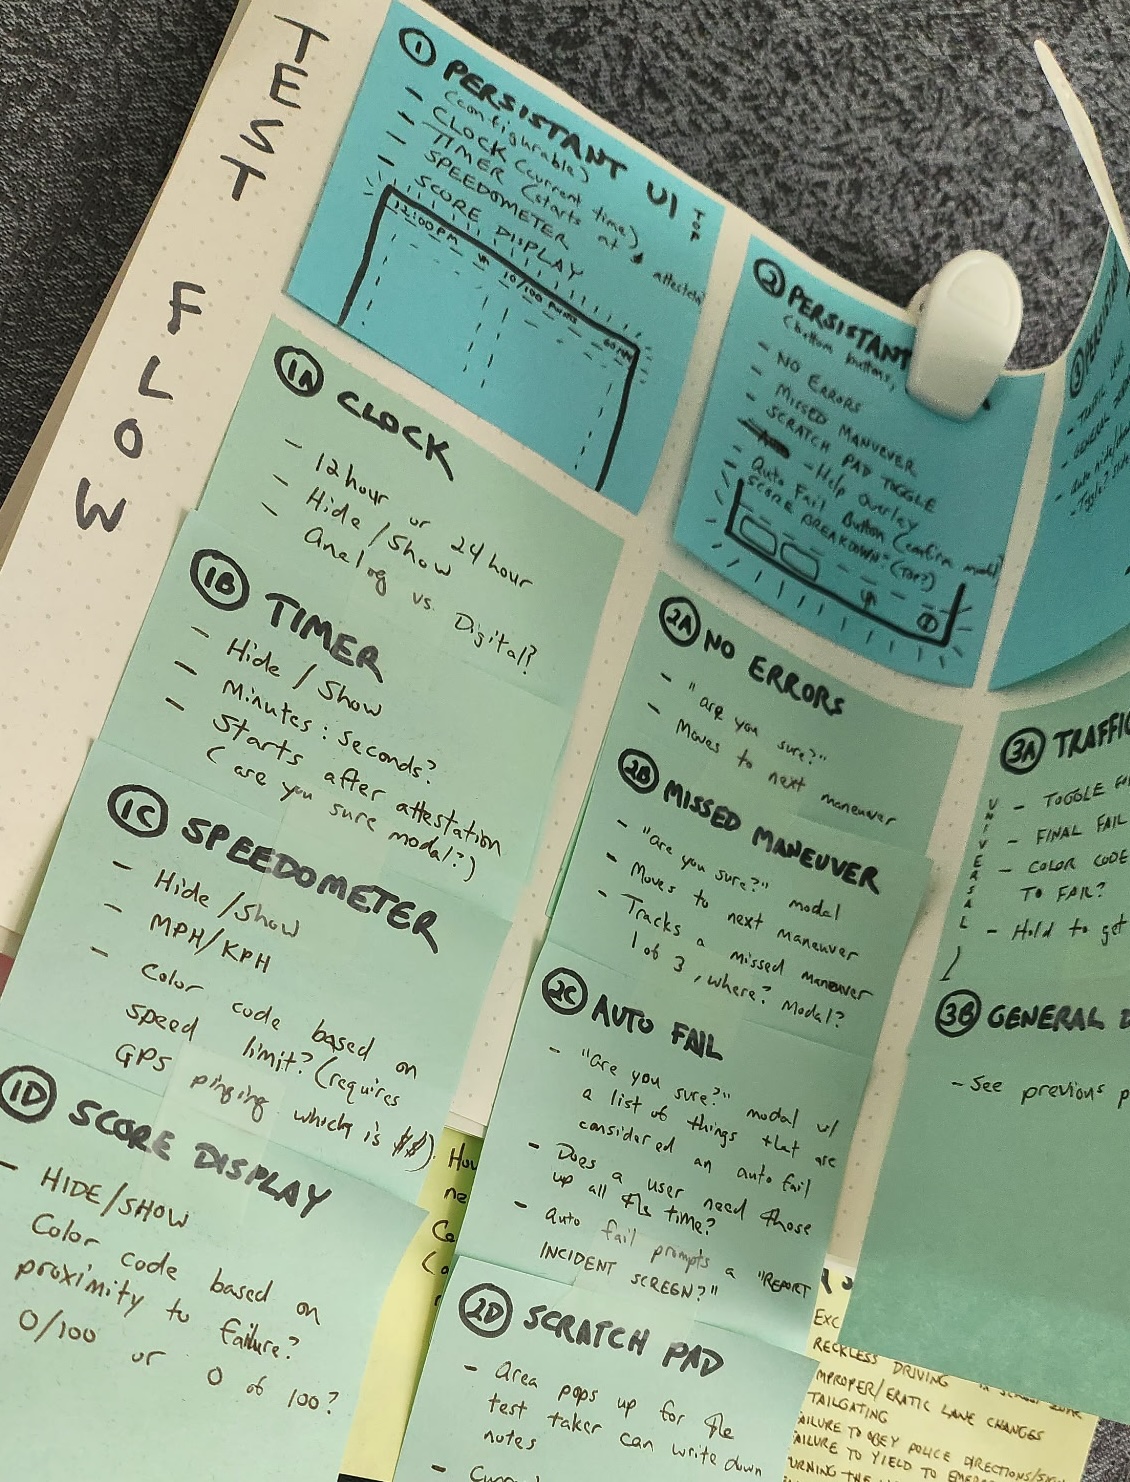 TEST
FLOW
① PERSISTANT UI TOP
(configurable)
- CLOCK (current time)
- TIMER (starts at attestation
- SPEEDOMETER
- SCORE DISPLAY
12:00PM
10/100 POINTS
60 MPH
1A CLOCK
- 12 hour or 24 hour
- Hide/Show
- Analog vs. Digital?
1B TIMER
- Hide / Show
- Minutes : seconds?
- Starts after attestation
(are you sure modal?)
1C SPEEDOMETER
- Hide/Show
- MPH/KPH
- Color code based on
speed limit? (requires
GPS pinging which is $$).
1D SCORE DISPLAY
- HIDE/SHOW
Color code based on
proximity to failure?
0/100 or 0 of 100?
② PERSISTANT
(bottom buttons,
- NO ERRORS
- MISSED MANUEVER
- SCRATCH PAD TOGGLE
- Help Overlay
- Auto Fail Button (confirm modal)
- SCORE BREAKDOWN" (TOP?)
2A NO ERRORS
- "are you sure?"
- Moves to next maneuver
2B MISSED MANEUVER
- "are you sure?" modal
- Moves to next maneuver
- Tracks a missed maneuver
1 of 3, where? Modal?
2C AUTO FAIL
- "are you sure?" modal w/
a list of things that are
considered an auto fail
- Does a user need those
up all the time?
- auto fail prompts a "REPORT
INCIDENT SCREEN?"
2D SCRATCH PAD
- Area pops up for the
test taker can write down
notes
③ PERSI
- TRAFFIC
- GENERAL
- Auto hide/
3A TRAFFIC
UNIVERSAL
- TOGGLE
- FINAL FAIL
- COLOR CODE
TO FAIL?
- Hold to get
3B GENERAL D
- See previous p
How
ne
Ca
EXC
RECKLESS DRIVING
MPROPER/ERATIC LANE CHANGES
TAILGATING
AILURE TO OBEY POLICE DIRECTIONS/
AILURE TO YIELD TO EMERG
URNING THE